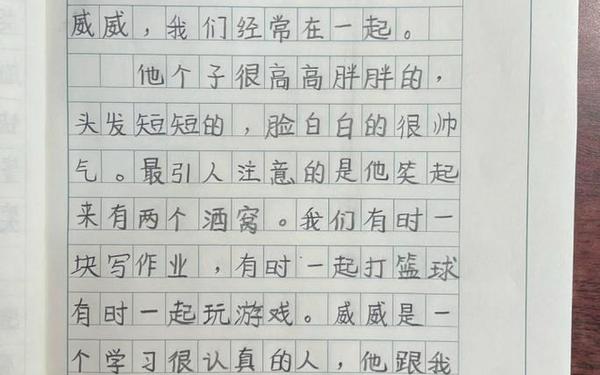 威威，我们经常在一起。
他个子很高高胖胖的，
头发短短的，脸白白的很帅
气。最引人注意的是他笑起
来有两个酒窝。我们有时一
块写作业，有时一起打篮球
有时一起玩游戏。威威是一
个学习很认真的人，他跟我